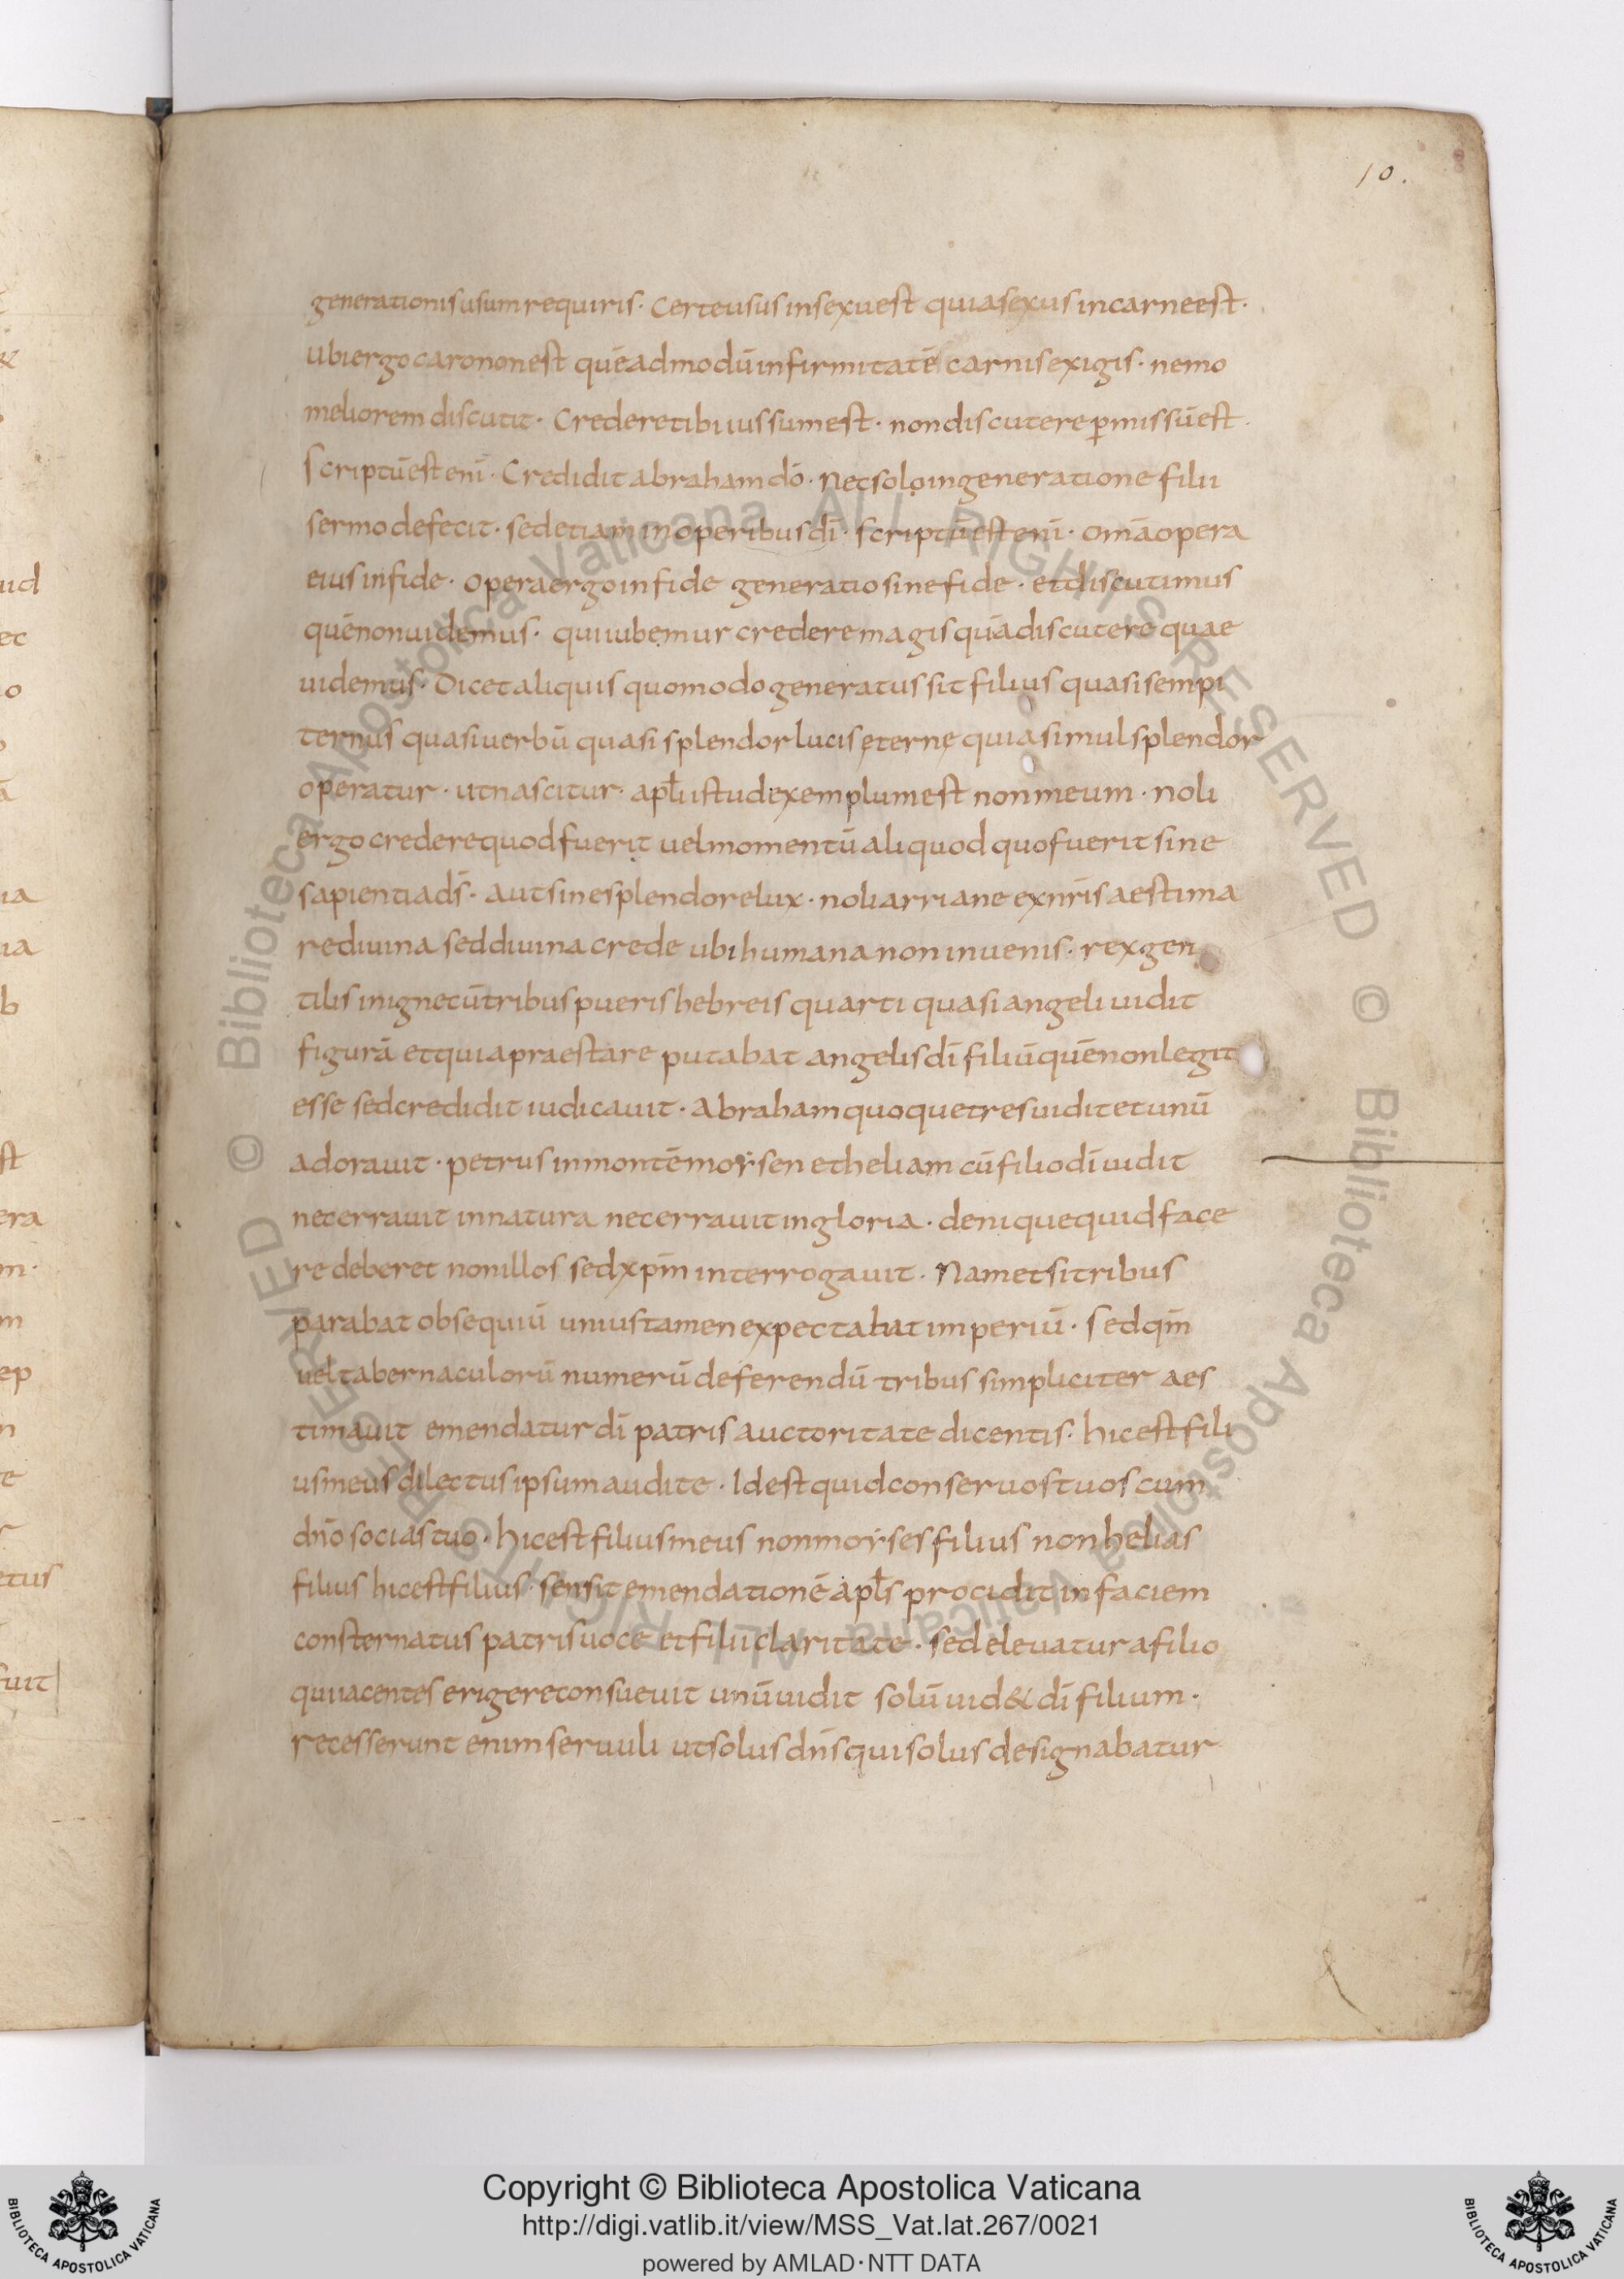 10.
generationis usum requiris· Certe usus in sexu est quia sexus in carne est·
ubi ergo caro non est quēadmodū infirmitatē carnis exigis· nemo
meliorem discutit· Credere tibi iussum est· non discutere p̱missū est·
Scriptū est enī· Credidit abraham dō· Nec solo in generatione filii
sermo defecit· sed etiam in operibus dī· scriptū est enī· omīa opera
eius in fide· opera ergo in fide generatio sine fide· et discutimus
quē non uidemus· qui iubemur credere magis quā discutere quae
uidemus· Dicet aliquis quomodo generatus sit filius quasi sempi
ternus quasi uerbū quasi splendor lucis ęternę quia simul splendor
operatur· ut nascitur· apłi istud exemplum est non meum· Noli
ergo credere quod fuerit uel momentū aliquod quo fuerit sine
sapientia ds̄· aut sine splendore lux· noli arriane ex nr̄is aestima
re diuina sed diuina crede ubi humana non inuenis· rex gen
tilis in igne cū tribus pueris hebreis quarti quasi angeli uidit
figurā et quia praestare putabat angelis dī filiū quē non legit
esse sed credidit iudicauit· Abraham quoque tres uidit et unū
adorauit· petrus in montē moẏsen et heliam cū filio dī uidit
nec errauit in natura nec errauit in gloria· denique quid face
re deberet non illos sed xp̄m interrogauit· Nam etsi tribus
parabat obsequiū unius tamen expectabat imperiū· Sed qm̄
uel tabernaculorū numerū deferendū tribus simpliciter aes
timauit emendatur dī patris auctoritate dicentis· hic est fili
us meus dilectus ipsum audite· Id est quid conseruos tuos cum
dn̄o socias tuo· hic est filius meus non moẏses filius non helias
filius hic est filius· sensit emendationē apłs procidit in faciem
consternatus patris uoce et filii claritate· sed eleuatur a filio
qui iacentes erigere consueuit unū uidit solū uid& dī filium·
recesserunt enim seruuli ut solus dn̄s qui solus designabatur
Copyright © Biblioteca Apostolica Vaticana
http://digi.vatlib.it/view/MSS_Vat.lat.267/0021
powered by AMLAD·NTT DATA